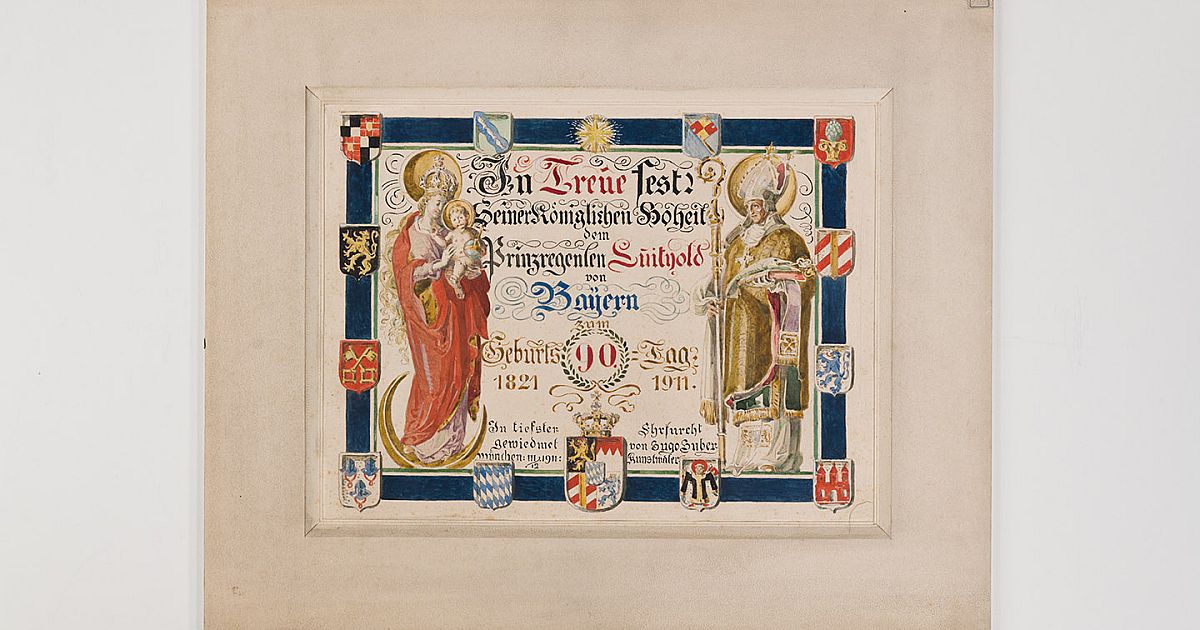 In Treue fest!
Seiner Königlichen Hoheit
dem
Prinzregenten Luitpold
von
Bayern
zum
Geburts 90. = Tag
1821 1911.
In tiefster Ehrfurcht
gewiedmet von Hugo Huber
München: 1911: Kunstmaler